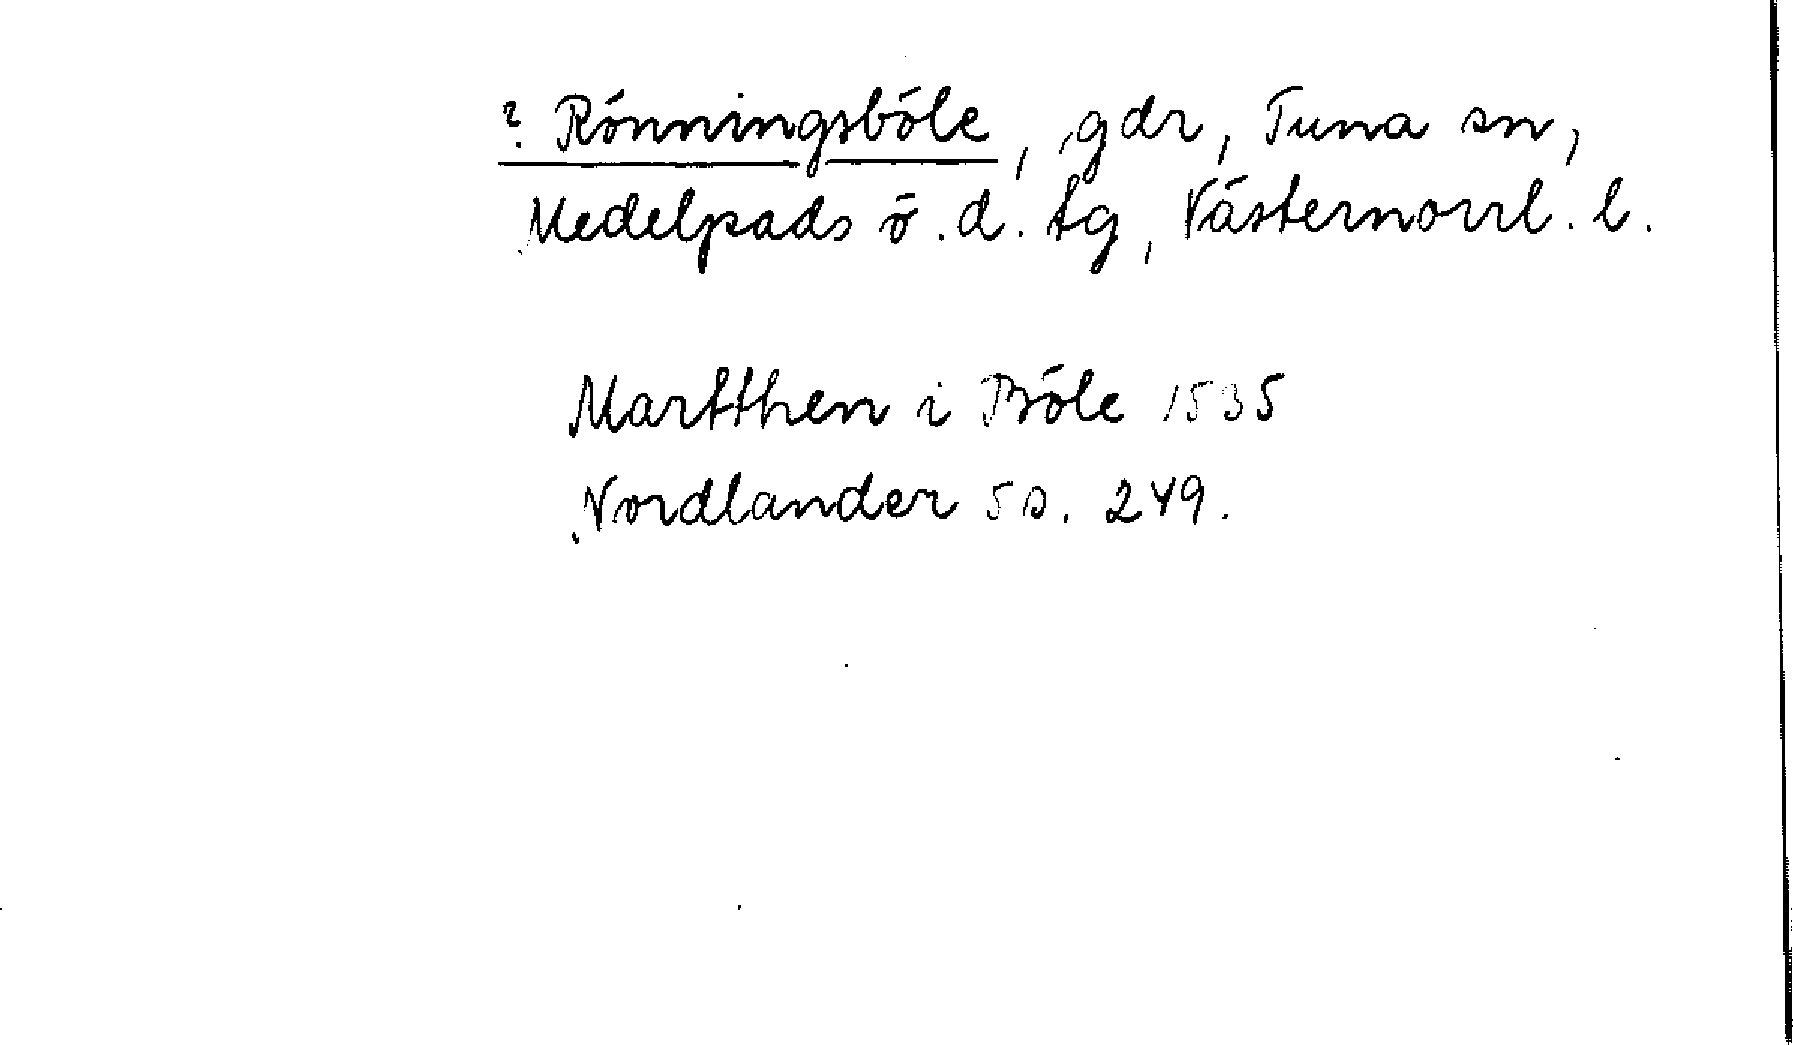 ? Rönningsböle, gdr, Tuna sn,
Medelpads ö.d. tg, Västernorrl. l.
Martthen i Böle 1535
Nordlander 5 s. 249.